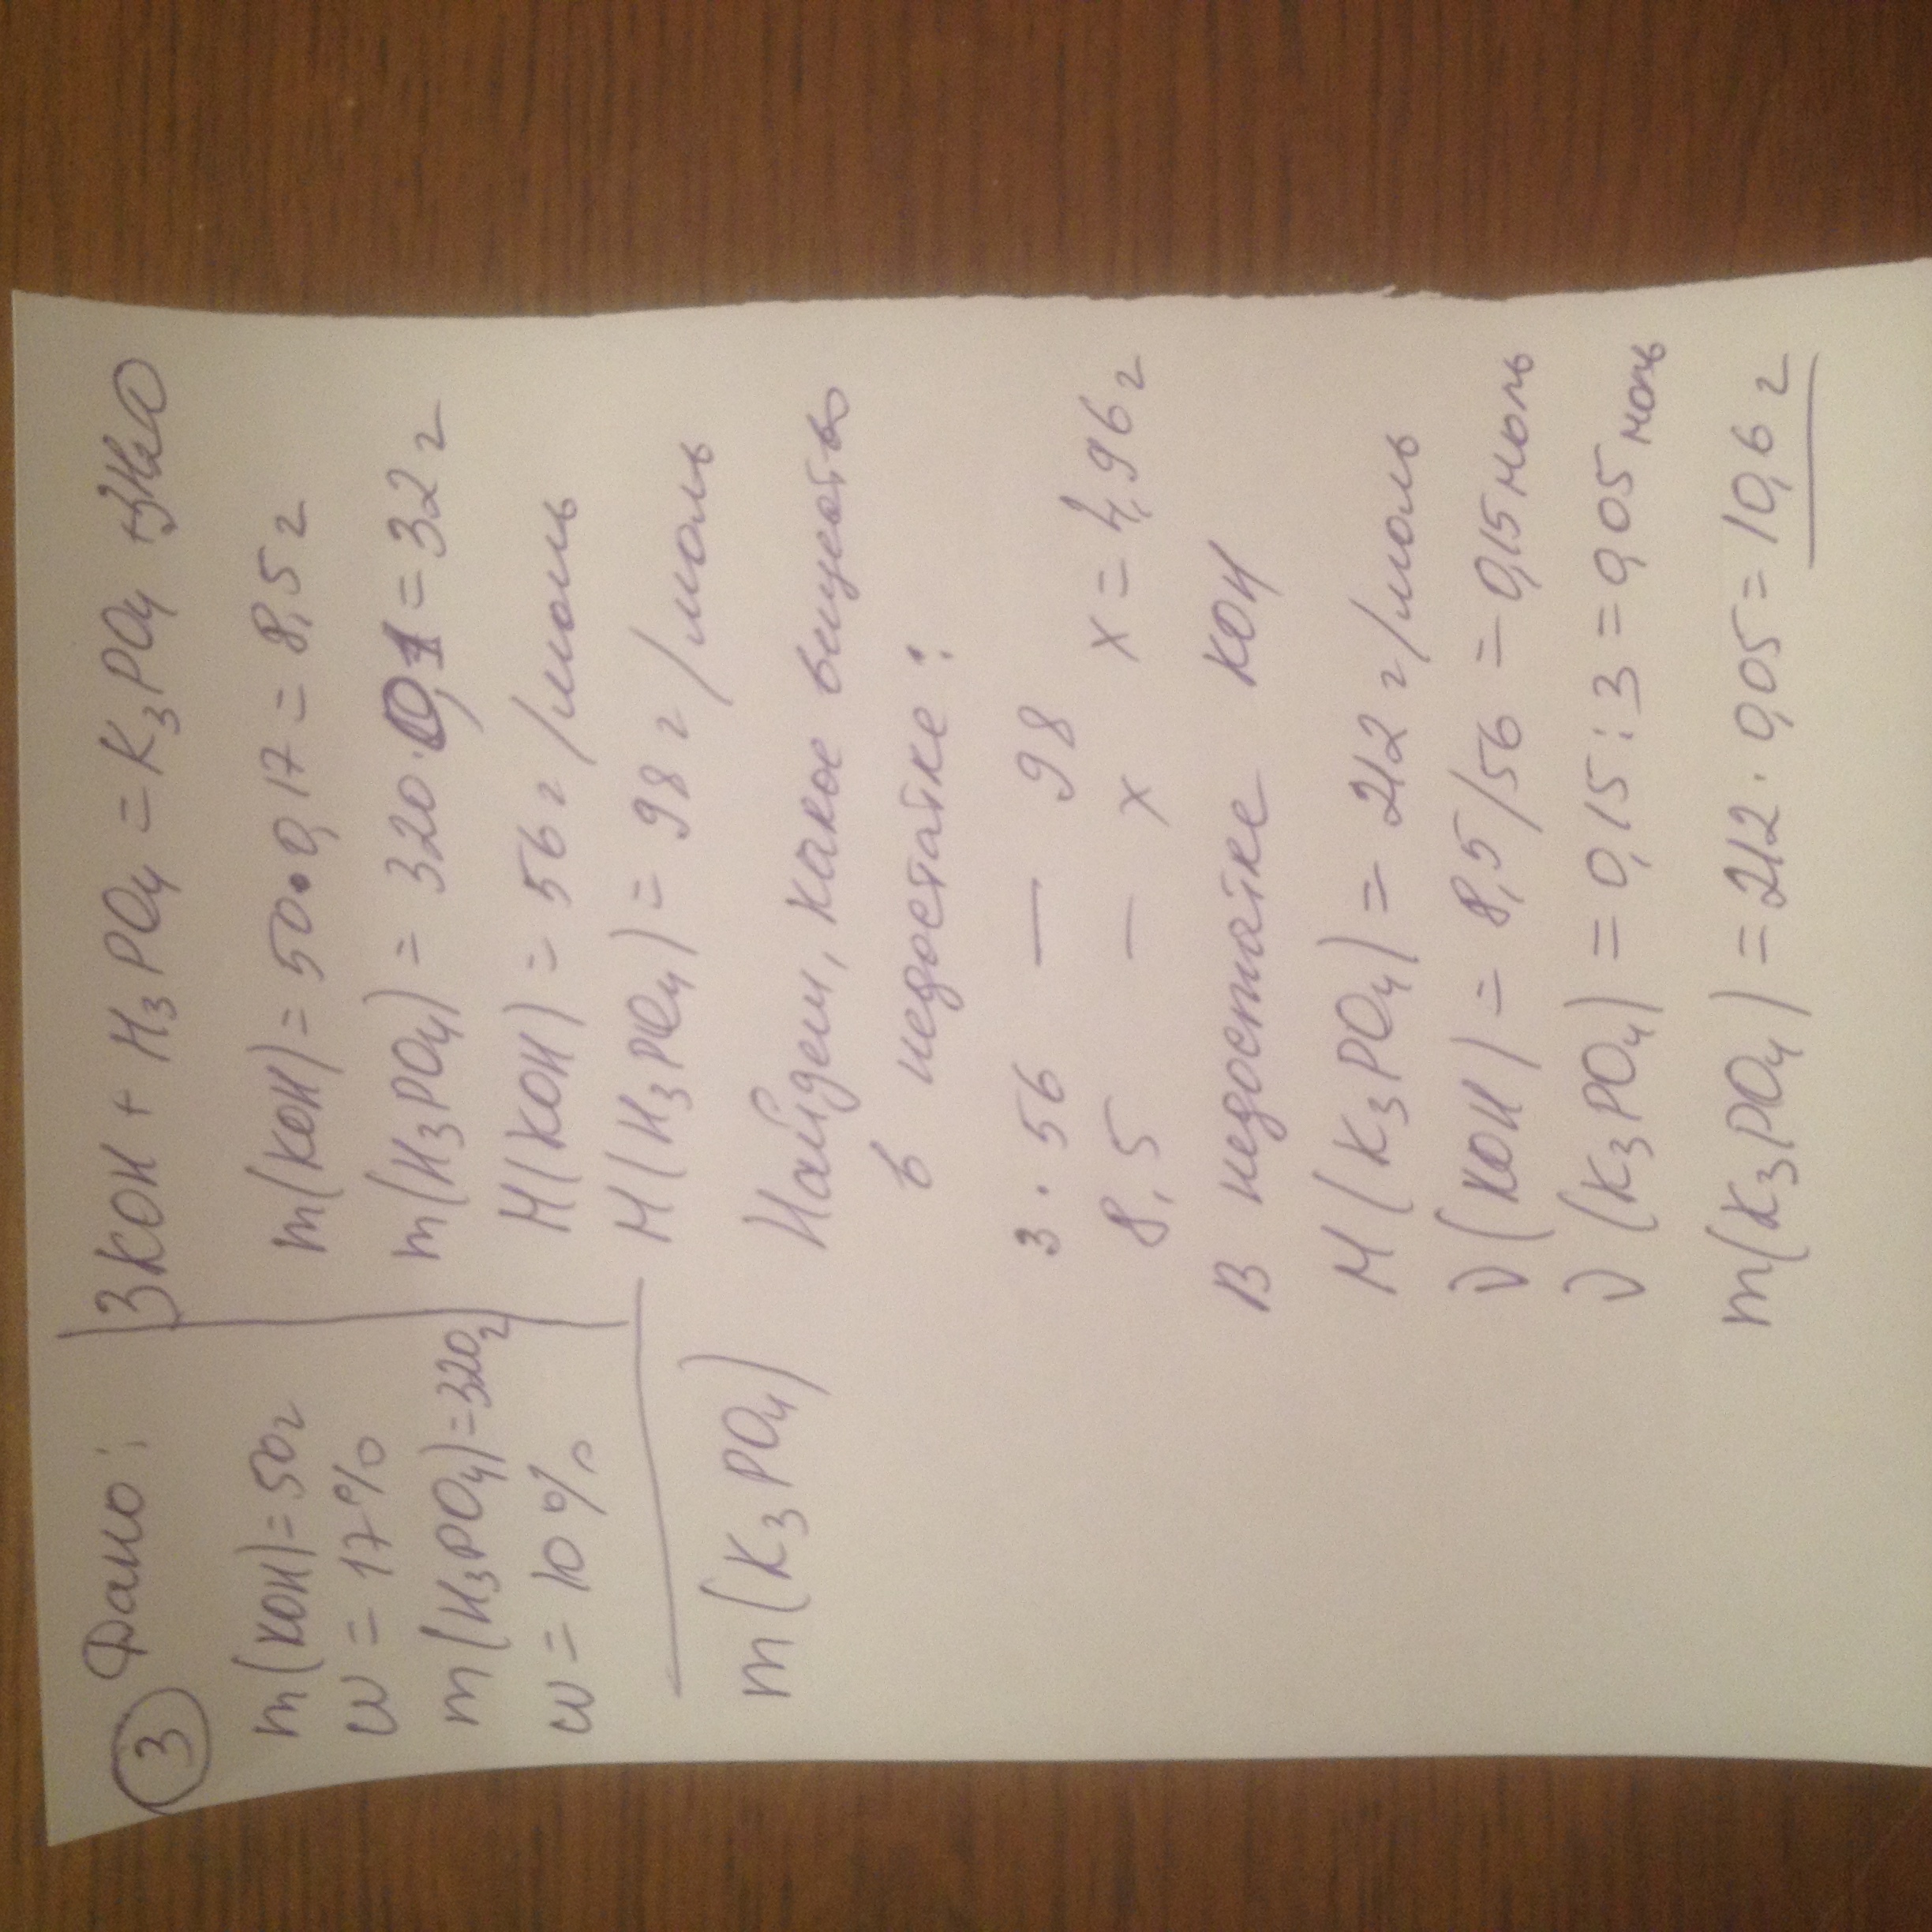 ③ Дано:
m(KOH)=50г
w = 17%
m(H₃PO₄)=320г
w = 10%
m(K₃PO₄)
3KOH + H₃PO₄ = K₃PO₄ + 3H₂O
m(KOH) = 50·0,17 = 8,5 г
m(H₃PO₄) = 320·0,1 = 32 г
M(KOH) = 56 г/моль
M(H₃PO₄) = 98 г/моль
Найдем, какое вещество
в недостатке:
3·56 — 98
8,5 — x x = 4,96 г
В недостатке KOH
M(K₃PO₄) = 212 г/моль
ν(KOH) = 8,5/56 = 0,15 моль
ν(K₃PO₄) = 0,15:3 = 0,05 моль
m(K₃PO₄) = 212·0,05 = 10,6 г